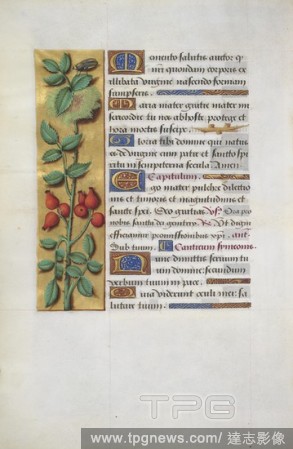 Memento salutis auctor q
nri quondam corporis ex
illibata virgine nascendo formam
sumpseris.
Maria mater gratie mater mi
sericordie tu nos ab hoste protege et
hora mortis suscipe.
Gloria tibi domine qui natus
es de virgine cum patre et sancto spi
ritu in sempiterna secula. Amen.
Capitulum.
Ego mater pulchre dilectio
nis et timoris et magnitudinis et
sancte spei. Deo gratias. Vs. Ora pro
nobis sancta dei genitrix. Rs. Ut digni
efficiamur promissionibus xpi. ant.
Sub tuum. Canticum symeonis.
Nunc dimittis servum tu
um domine: secundum
verbum tuum in pace.
Quia viderunt oculi mei: sa
lutare tuum.
TPG
www.tpgnews.com / 達志影像